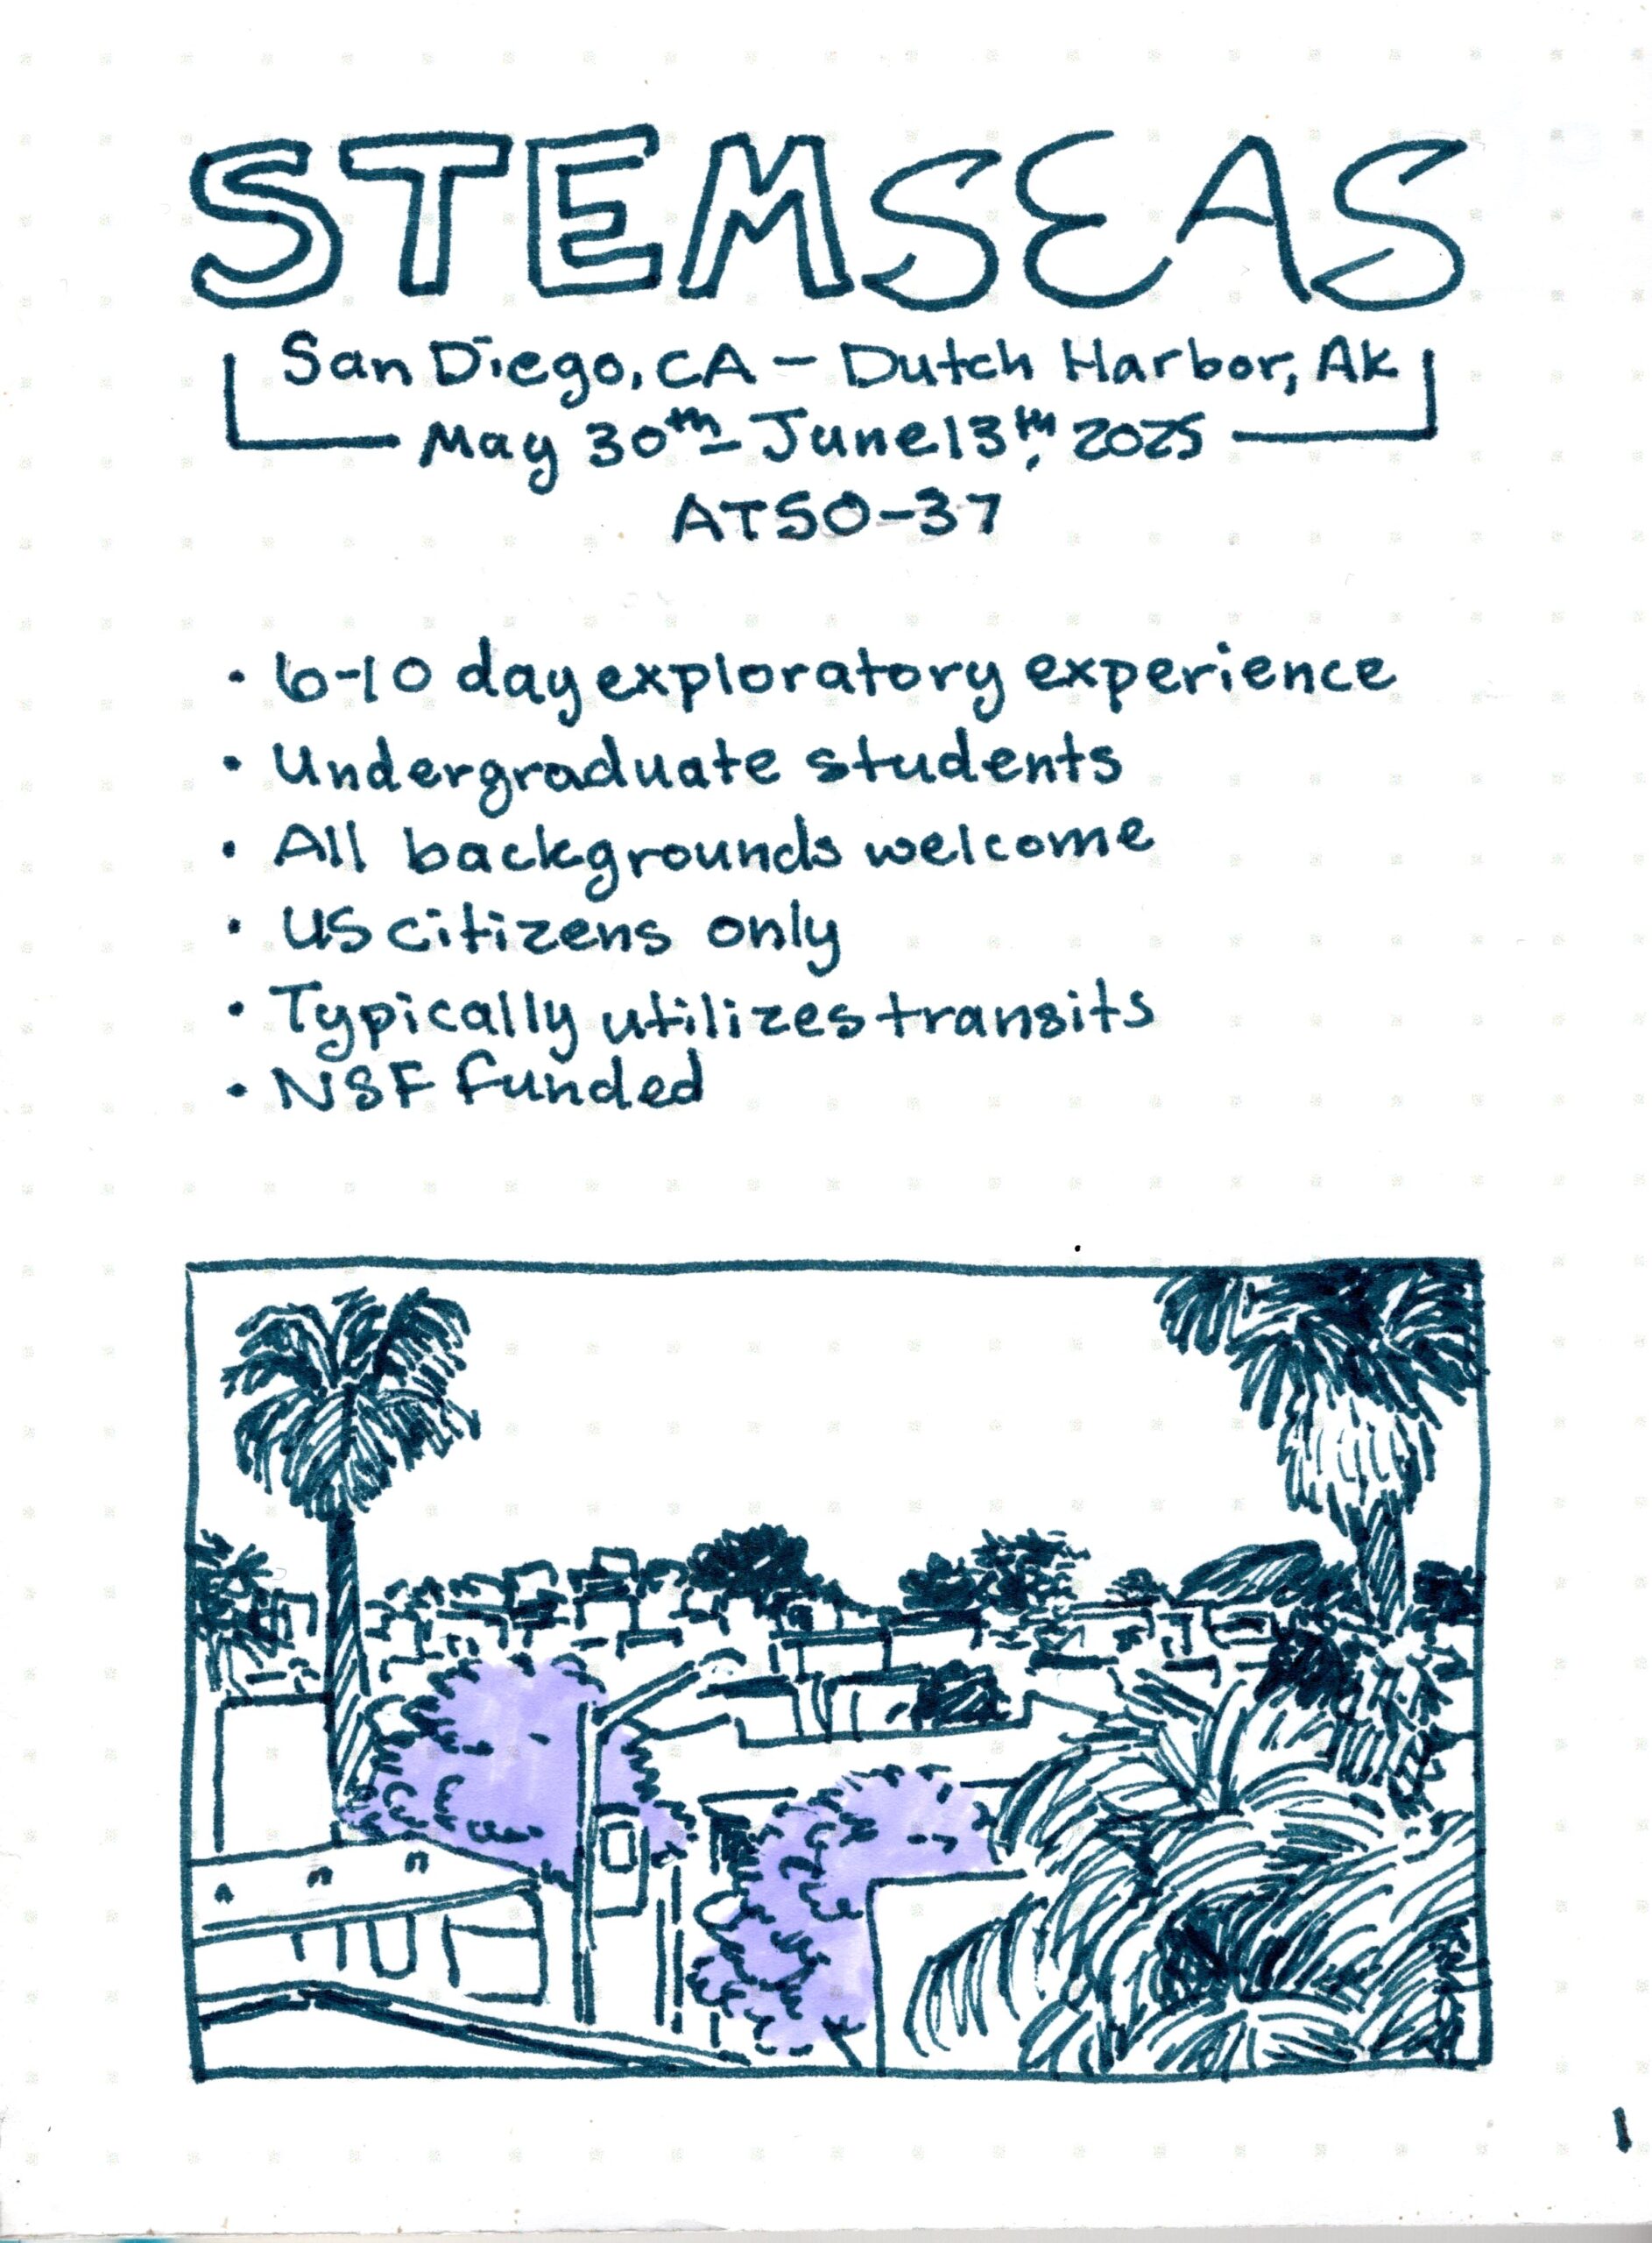 STEMSEAS
San Diego, CA - Dutch Harbor, AK
May 30th - June 13th, 2025
AT50-37
• 6-10 day exploratory experience
• Undergraduate students
• All backgrounds welcome
• US citizens only
• Typically utilizes transits
• NSF funded
1